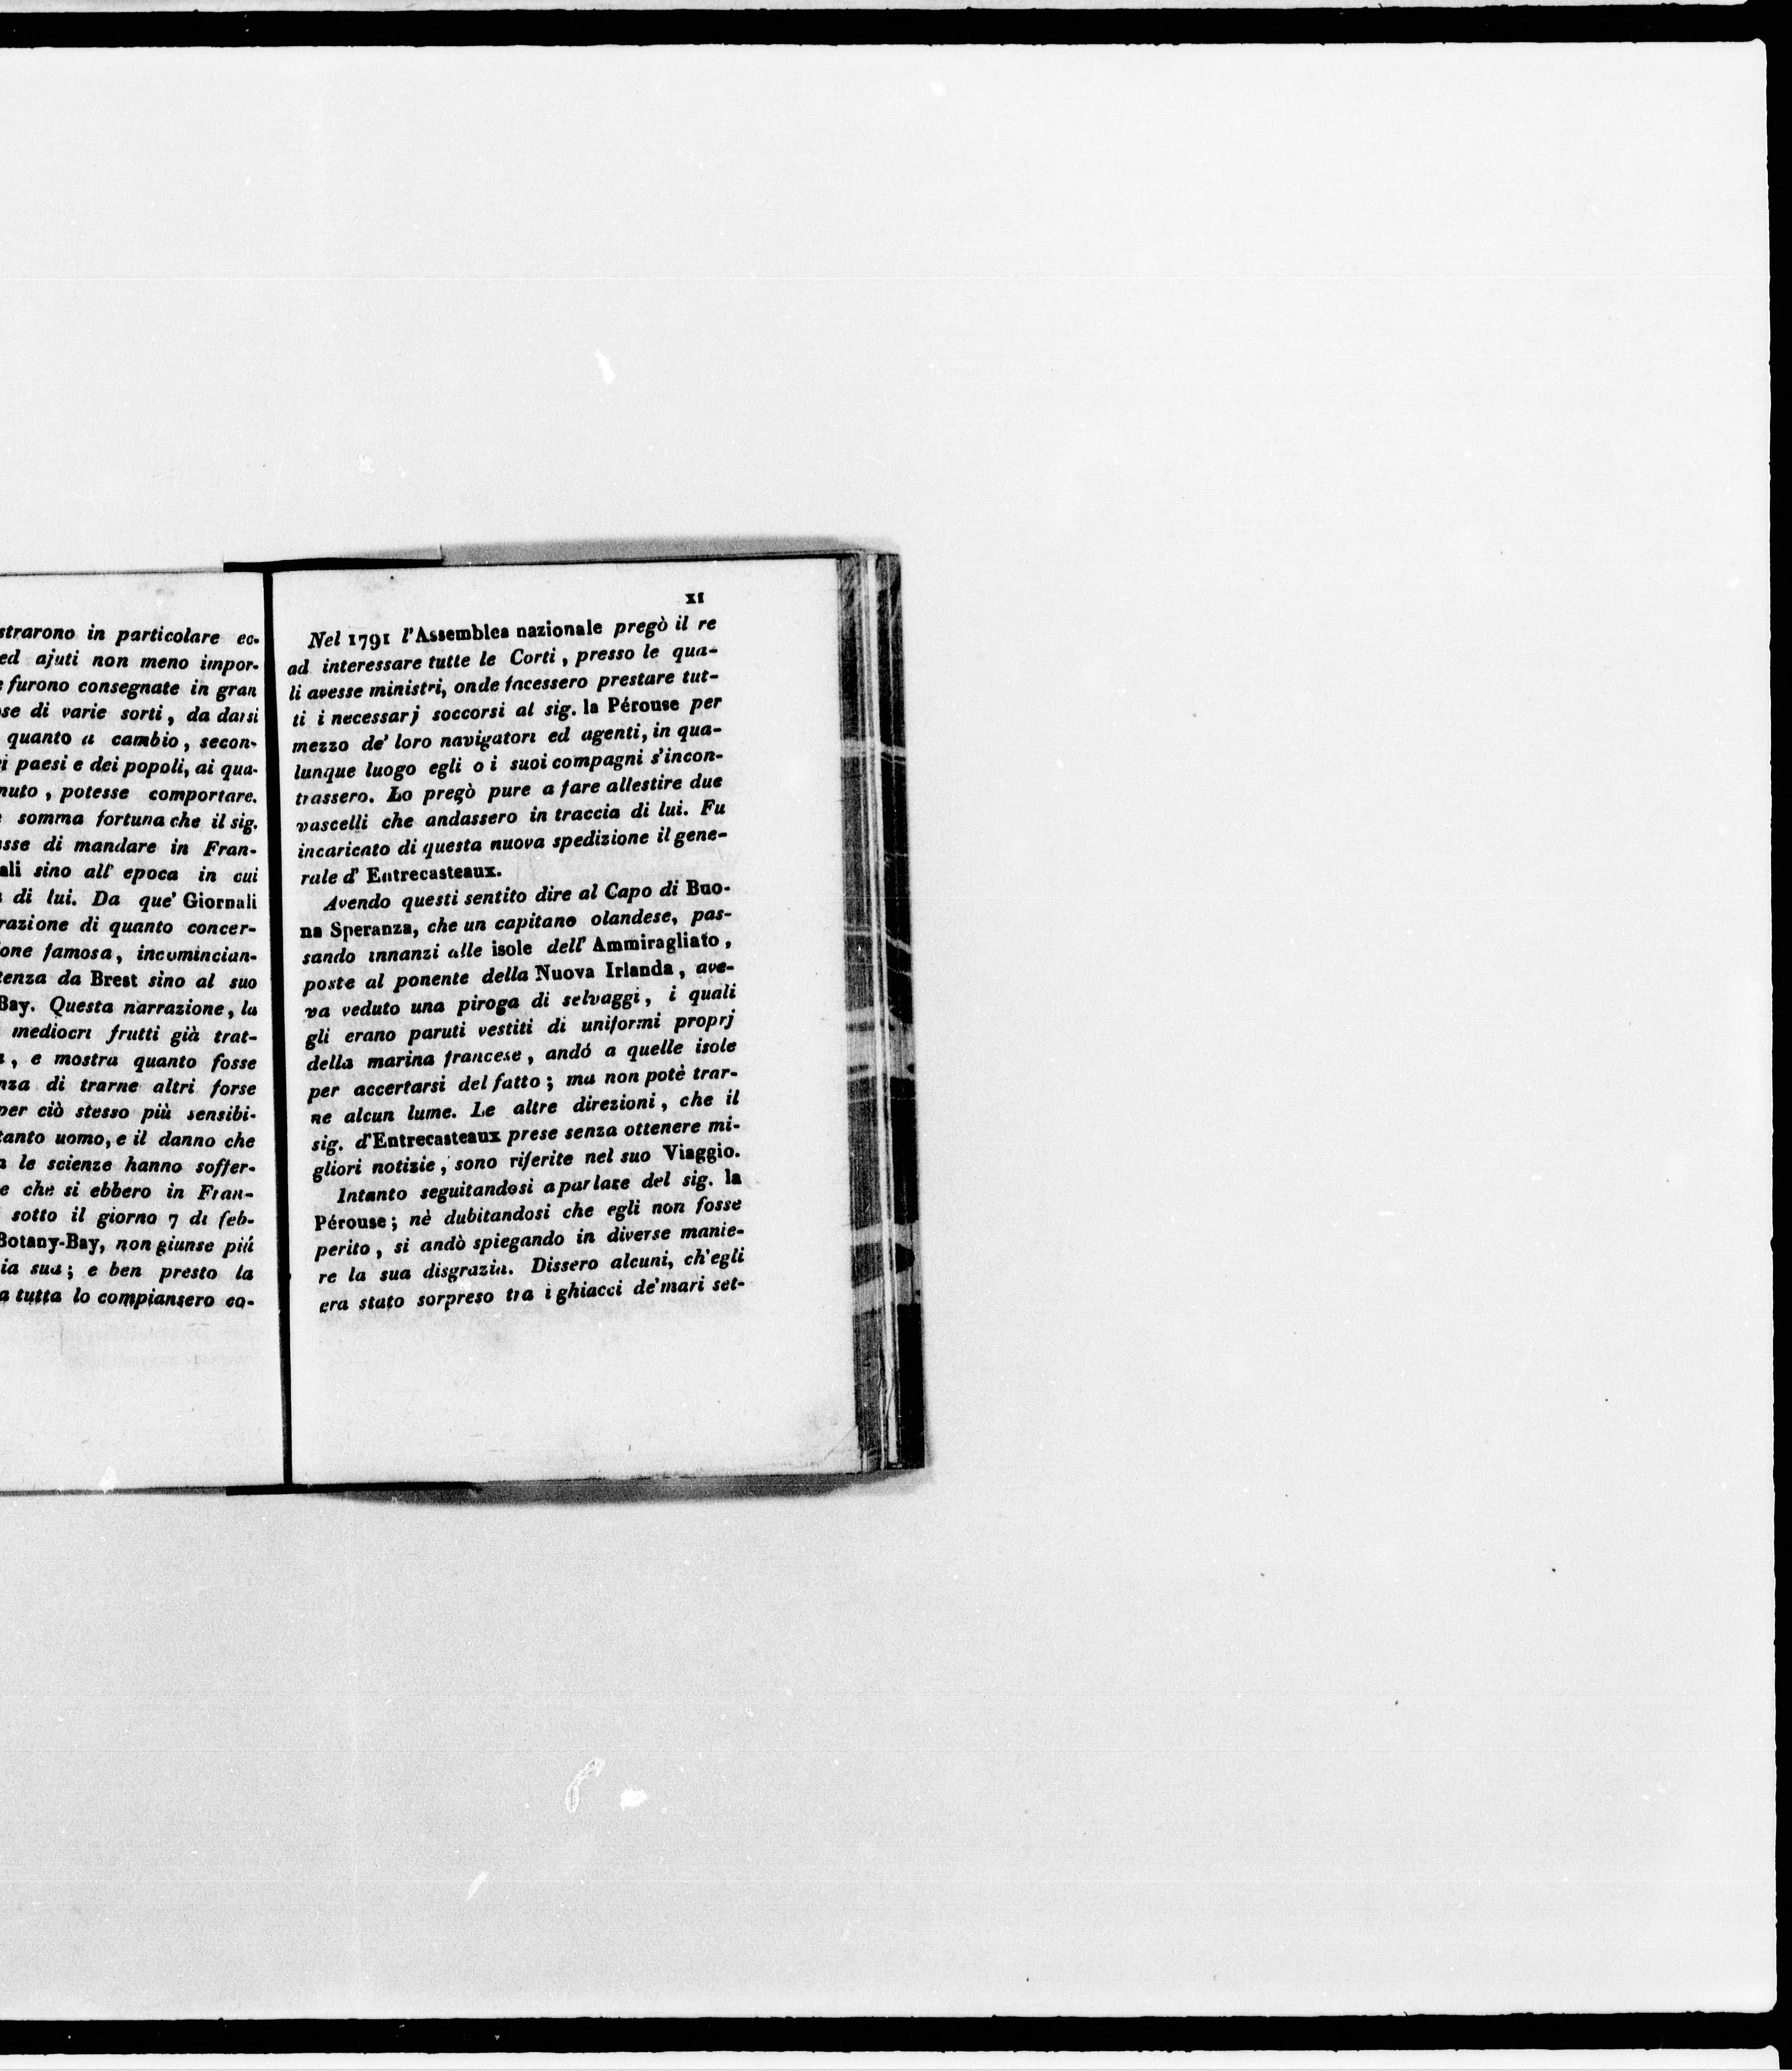 strarono in particolare ec-
ed ajuti non meno impor-
furono consegnate in gran
se di varie sorti, da darsi
quanto a cambio, secon-
i paesi e dei popoli, ai qua-
nuto, potesse comportare.
somma fortuna che il sig.
sse di mandare in Fran-
ali sino all' epoca in cui
di lui. Da que' Giornali
razione di quanto concer-
one famosa, incomincian-
tenza da Brest sino al suo
Bay. Questa narrazione, la
mediocri frutti già trat-
, e mostra quanto fosse
nza di trarne altri forse
per ciò stesso più sensibi-
tanto uomo, e il danno che
le scienze hanno soffer-
e che si ebbero in Fran-
sotto il giorno 7 di feb-
Botany-Bay, non giunse più
ia sua; e ben presto la
a tutta lo compiansero co-
XI
Nel 1791 l'Assemblea nazionale pregò il re
ad interessare tutte le Corti, presso le qua-
li avesse ministri, onde facessero prestare tut-
ti i necessarj soccorsi al sig. la Pérouse per
mezzo de' loro navigatori ed agenti, in qua-
lunque luogo egli o i suoi compagni s'incon-
trassero. Lo pregò pure a fare allestire due
vascelli che andassero in traccia di lui. Fu
incaricato di questa nuova spedizione il gene-
rale d' Entrecasteaux.
Avendo questi sentito dire al Capo di Buo-
na Speranza, che un capitano olandese, pas-
sando innanzi alle isole dell' Ammiragliato,
poste al ponente della Nuova Irlanda, ave-
va veduto una piroga di selvaggi, i quali
gli erano paruti vestiti di uniformi proprj
della marina francese, andó a quelle isole
per accertarsi del fatto; ma non potè trar-
ne alcun lume. Le altre direzioni, che il
sig. d'Entrecasteaux prese senza ottenere mi-
gliori notizie, sono riferite nel suo Viaggio.
Intanto seguitandosi a parlare del sig. la
Pérouse; nè dubitandosi che egli non fosse
perito, si andò spiegando in diverse manie-
re la sua disgrazia. Dissero alcuni, ch'egli
era stato sorpreso tra i ghiacci de' mari set-